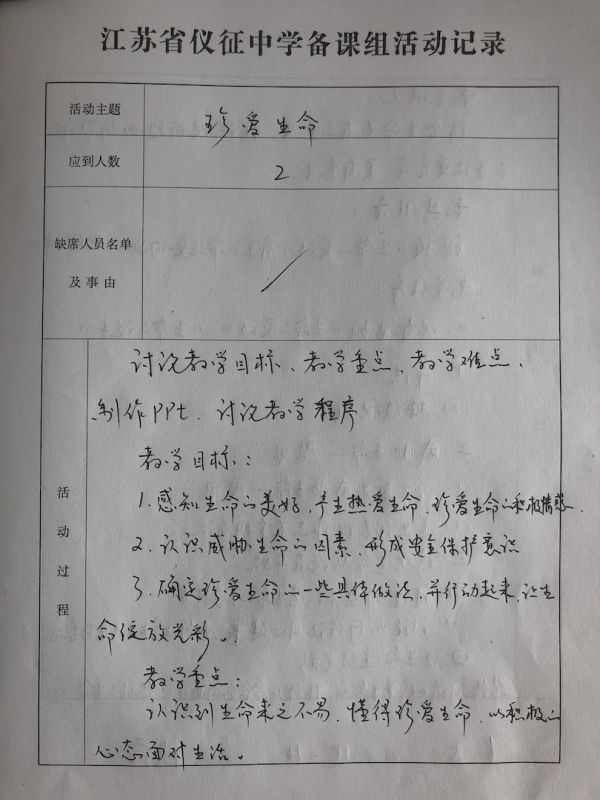 江苏省仪征中学备课组活动记录
活动主题 珍爱生命
应到人数 2
缺席人员名单
及事由
活动过程
讨论教学目标、教学重点、教学难点、
制作PPt、讨论教学程序
教学目标：
1.感知生命的美好，产生热爱生命、珍爱生命的积极情感.
2.认识威胁生命的因素，形成安全保护意识
3.确定珍爱生命的一些具体做法，并行动起来，让生
命绽放光彩。
教学重点：
认识到生命来之不易，懂得珍爱生命，以积极的
心态面对生活。